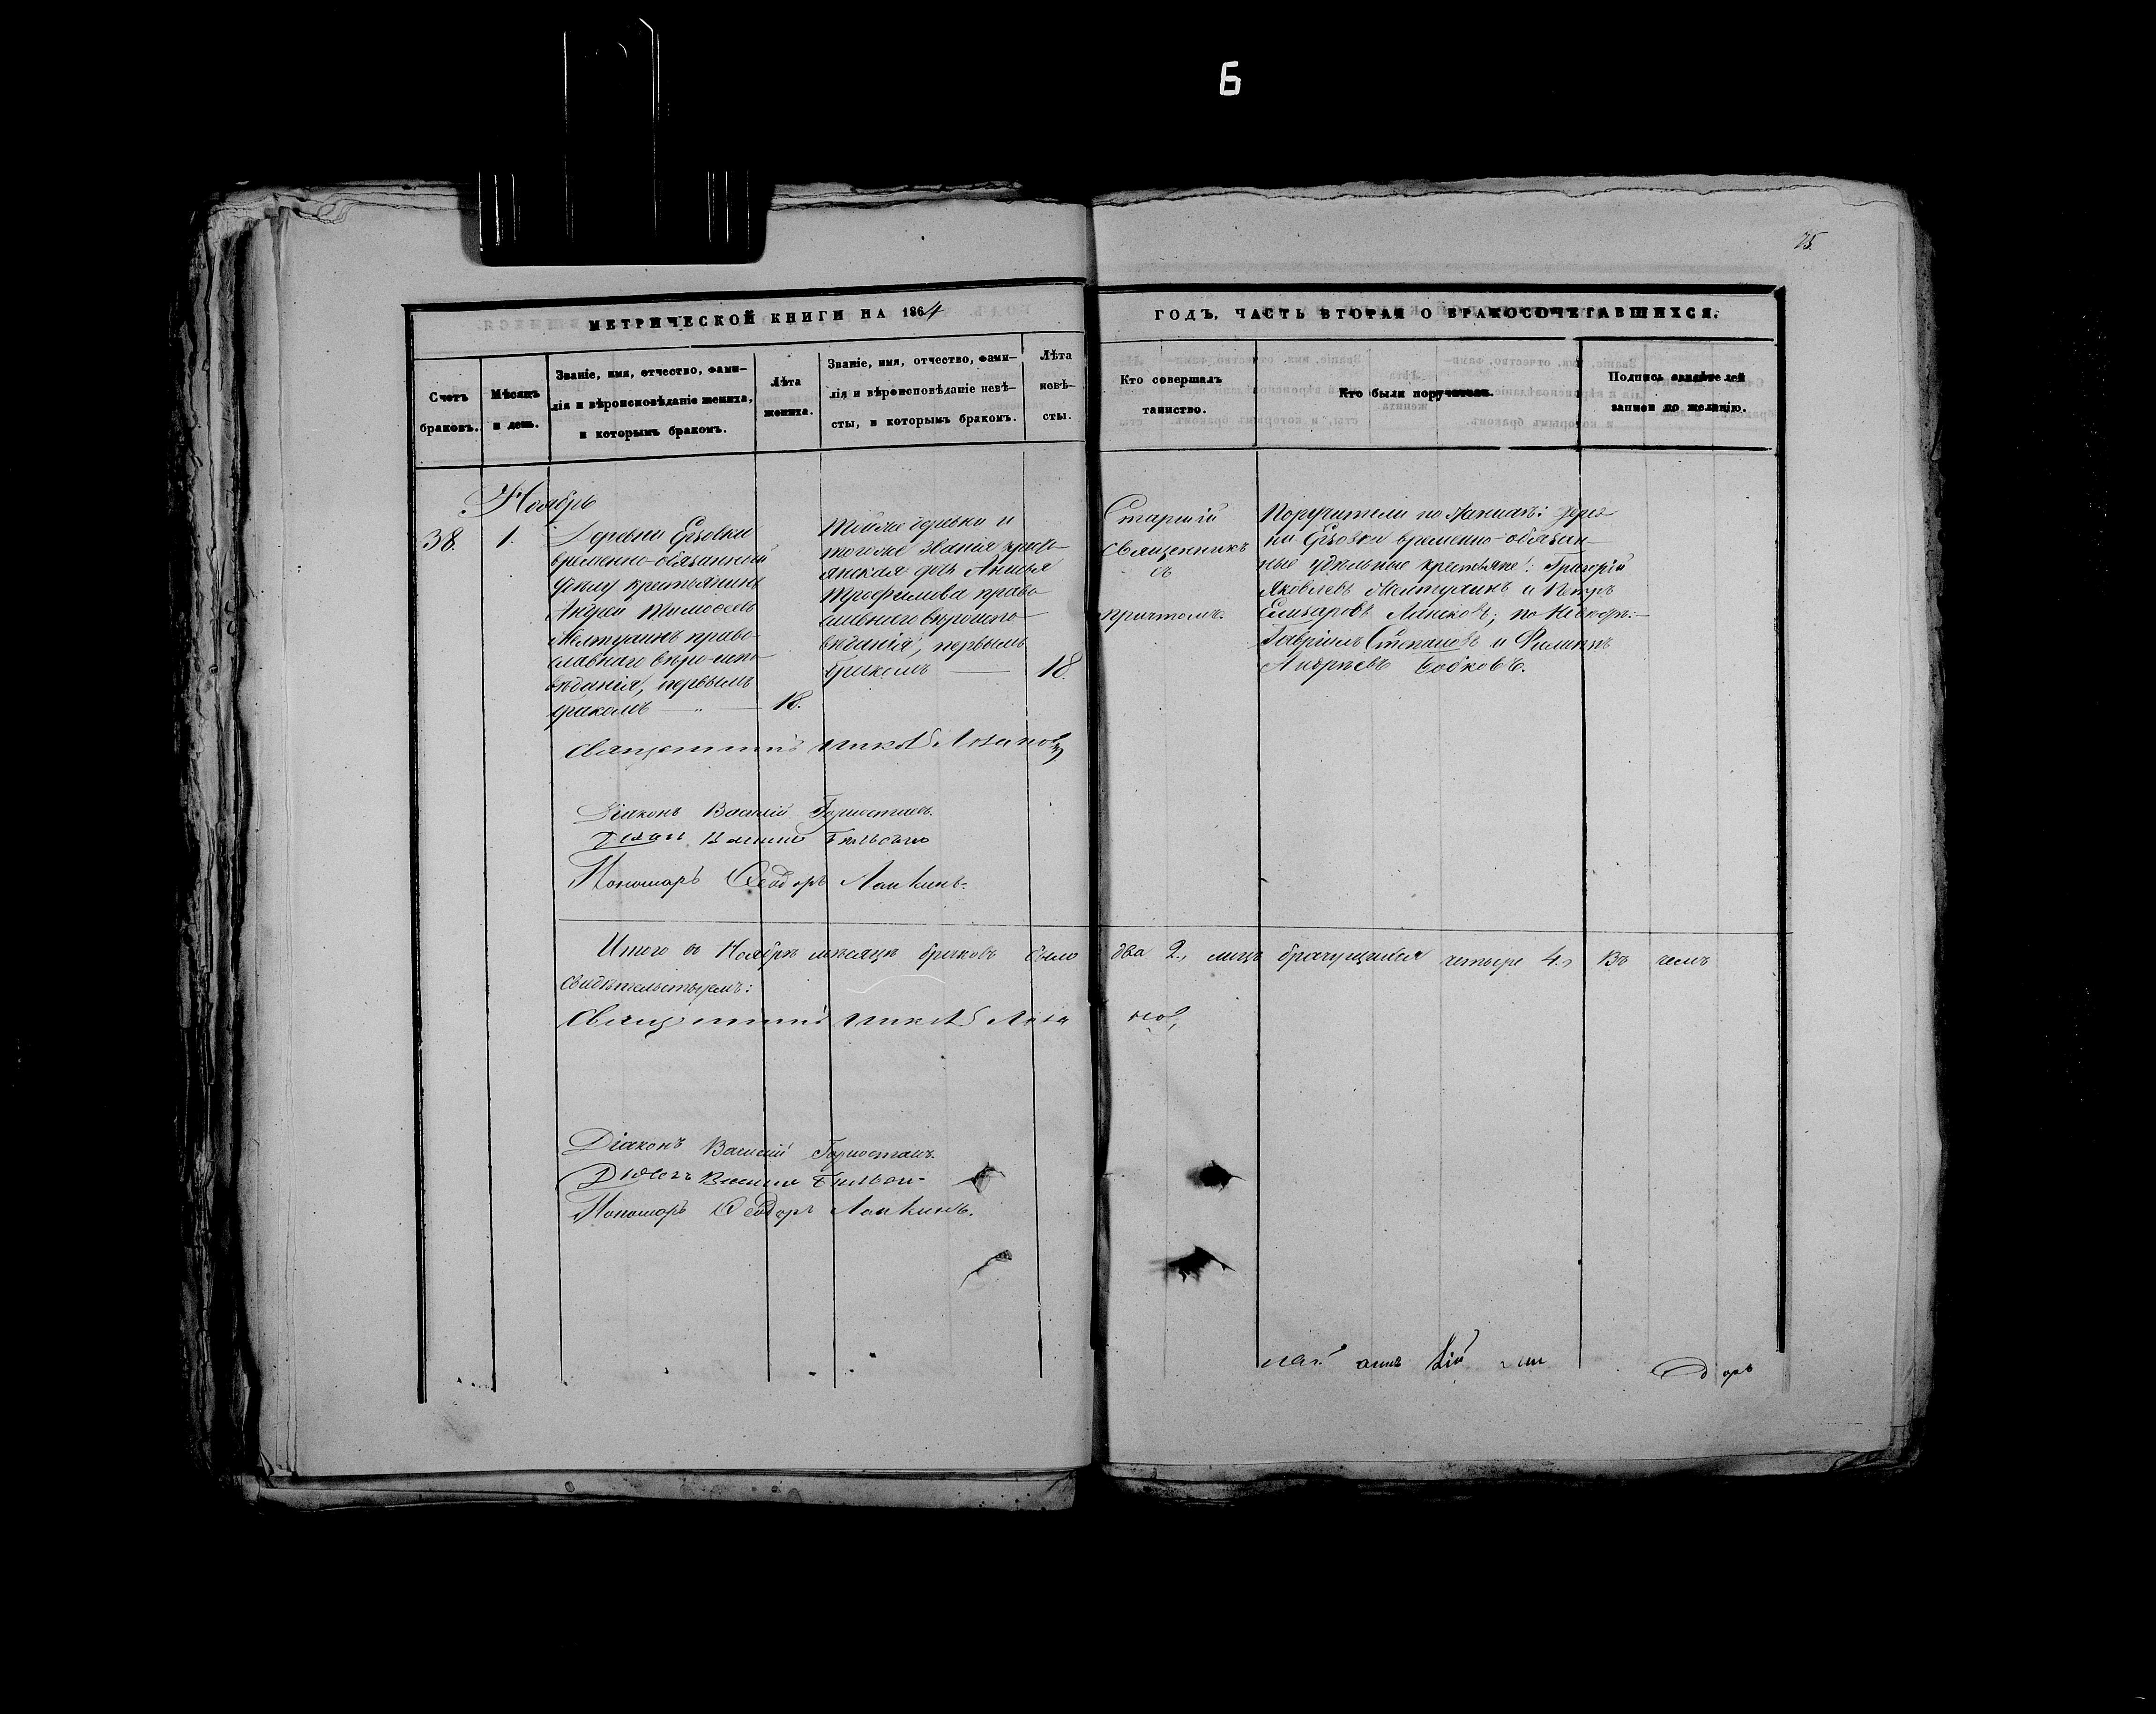 Б
75.
МЕТРИЧЕСКОЙ КНИГИ НА 1864
ГОДЪ, ЧАСТЬ ВТОРАЯ О БРАКОСОЧЕТАВШИХСЯ.
Счетъ
браковъ.
Мѣсяцъ
и день.
Званіе, имя, отчество, фами-
лія и вѣроисповѣданіе жениха,
и которымъ бракомъ.
Лѣта
жениха.
Званіе, имя, отчество, фами-
лія и вѣроисповѣданіе невѣ-
сты, и которымъ бракомъ.
Лѣта
невѣ-
сты.
Кто совершалъ
таинство.
Кто были поручители.
Подпись свидѣтелей
записи по желанію.
Ноябрь
38.
1.
Деревни Ерзовки
временно-обязанный
удѣлу крестьянинъ
Андрей Тимоѳеевъ
Желтухинъ право-
славнаго вѣро-испо-
вѣданія, первымъ
бракомъ — „ —
18.
тойже деревни и
тогоже званія кресть-
янская дочь Анисья
Трофимова право-
славнаго вѣроиспо-
вѣданія, первымъ
бракомъ —
18.
Старшій
Священникъ
съ
причтомъ.
Поручители по женихѣ: дерев
ни Ерзовки временно-обязан-
ные удѣльные крестьяне: Григорій
Яковлевъ Желтухинъ и Петръ
Елизаровъ по невѣстѣ:
Гавріилъ Степановъ и Филиппъ
Андреевъ Бобковъ.
Священникъ
Діаконъ Василій Горностаевъ.
Пономарь Ѳеодоръ Лапкинъ.
Итого въ Ноябрѣ мѣсяцѣ браковъ было два 2., лицъ брачущихся четыре 4., Въ чемъ
свидѣтельствуемъ:
Священникъ
Діаконъ Василій Горностаевъ.
Пономарь Ѳеодоръ Лапкинъ.
доръ